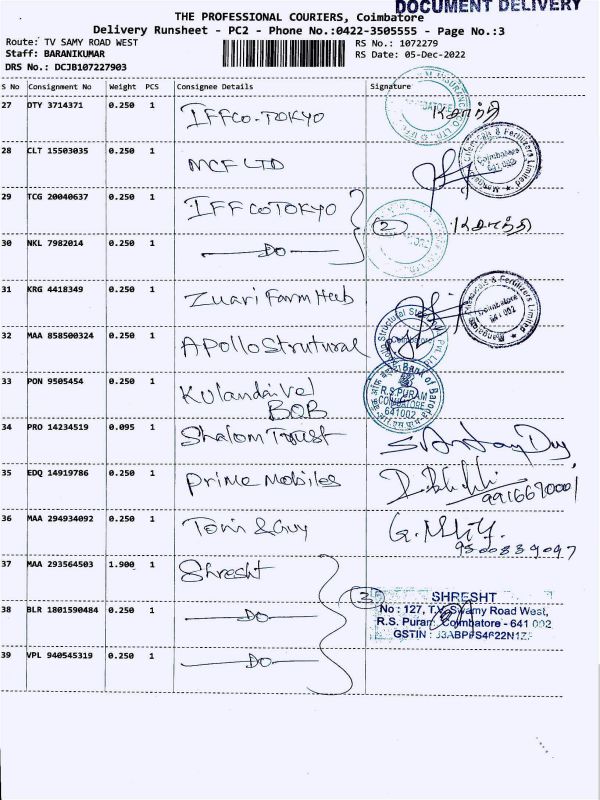 DOCUMENT DELIVERY
THE PROFESSIONAL COURIERS, Coimbatore
Delivery Runsheet - PC2 - Phone No.:0422-3505555 - Page No.:3
Route: TV SAMY ROAD WEST RS No.: 1072279
Staff: BARANIKUMAR RS Date: 05-Dec-2022
DRS No.: DCJB107227903
S No Consignment No Weight PCS Consignee Details Signature
27 DTY 3714371 0.250 1 IFFCO-TOKYO
28 CLT 15503035 0.250 1 MCF LTD
Coimbatore
641 002
29 TCG 20040637 0.250 1 IFFCOTOKYO 2
30 NKL 7982014 0.250 1 DO
31 KRG 4418349 0.250 1 Zuari Farm Hub
Coimbatore
641 002
32 MAA 858500324 0.250 1 Apollo Strutural
33 PON 9505454 0.250 1 Kulandaivel
BOB
Bank of Baroda
R.S PURAM
COIMBATORE
641002
34 PRO 14234519 0.095 1 Shalom Trust
35 EDQ 14919786 0.250 1 Prime Mobiles
36 MAA 294934092 0.250 1 Toni & Guy
9500839097
37 MAA 293564503 1.900 1 Shresht 3
SHRESHT
No : 127, T.V. Swamy Road West,
R.S. Puram, Coimbatore - 641 002
GSTIN :
38 BLR 1801590484 0.250 1 DO
39 VPL 940545319 0.250 1 DO